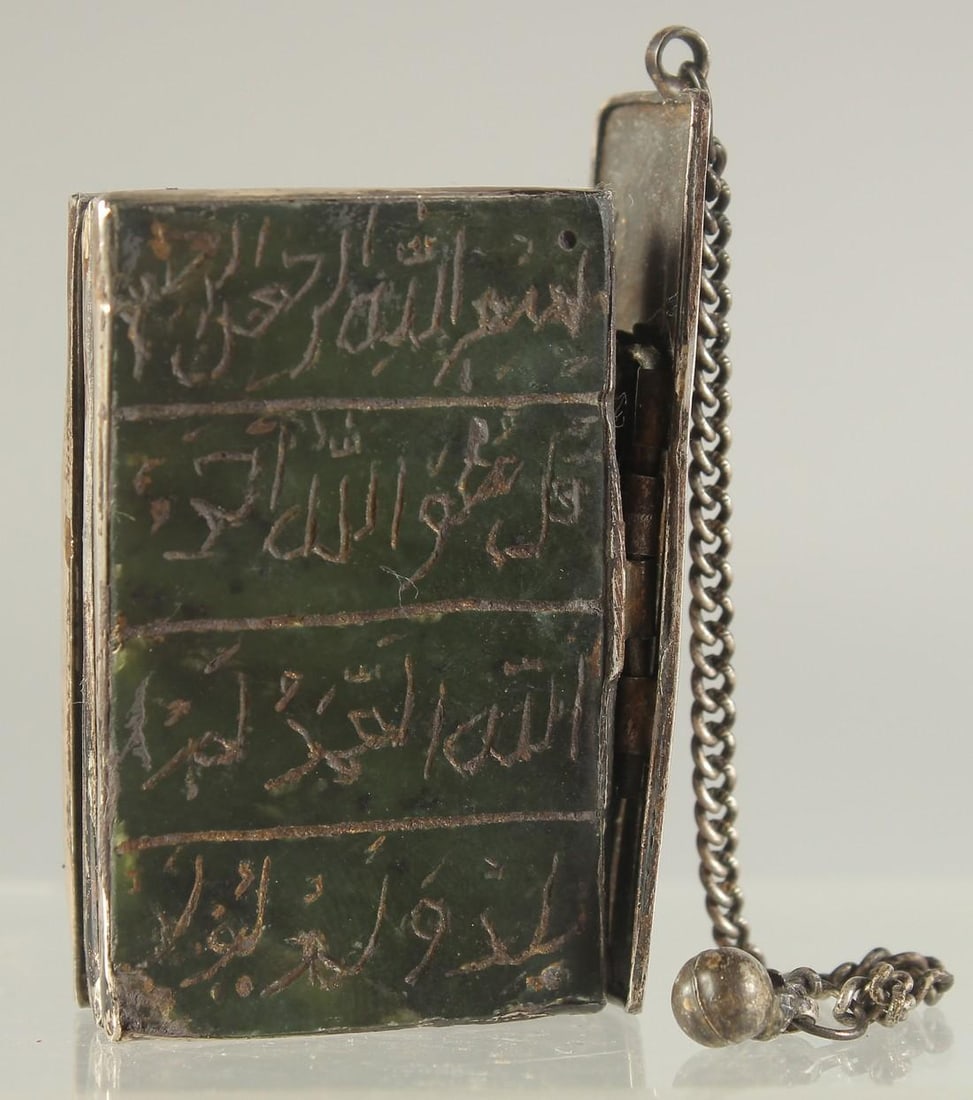 بسم الله الرحمن الرحيم
قل هو الله احد
الله الصمد لم
يلد ولم يولد